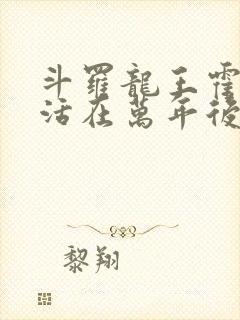 斗羅龍王霍
活在萬年後
黎翔